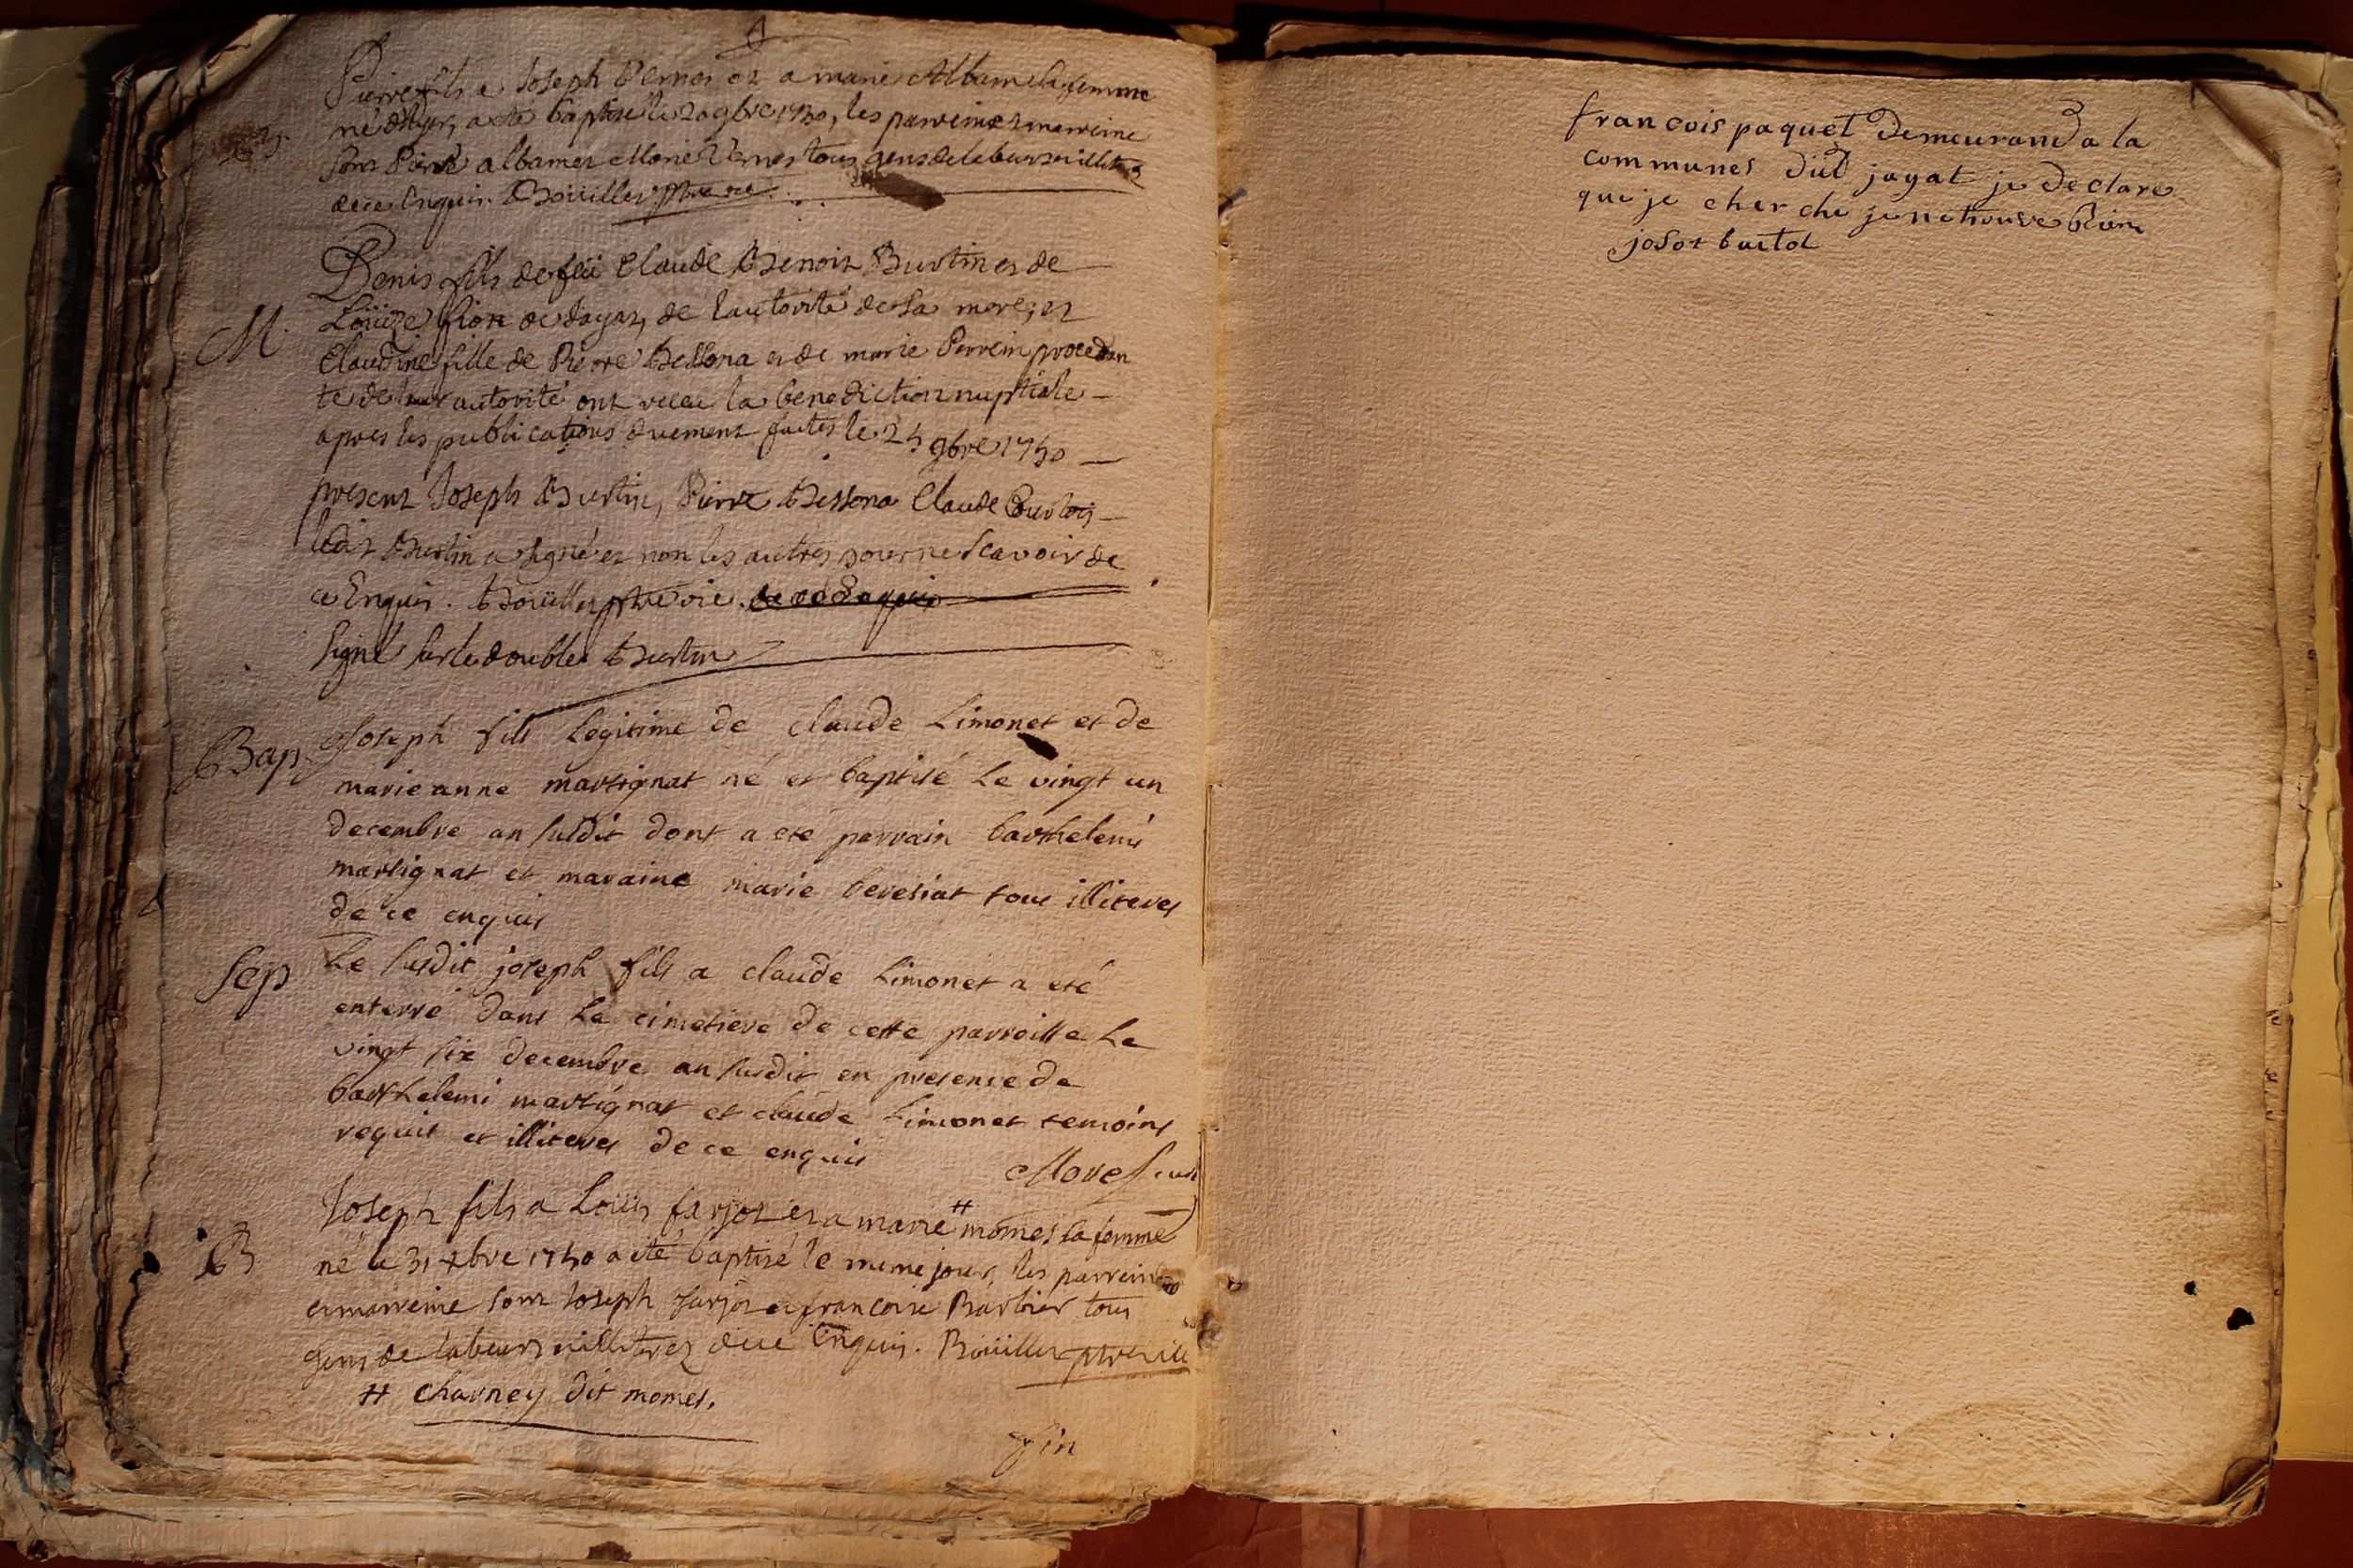 Pierre fils a Joseph Vernes et a marie Albam sa femme
né d'hyer, a eté baptisé le 20 9bre 1750, les parrein et marreine
sont Pierre albam et Marie Vernes tous gens de labeurs et illitrez
de ce Enquis. Boüiller ptre vic.
M.
Denis fils de feü Claude Benoit Burtin et de
Loüize de Jayat, de l'autorité de sa mere, et
Claudine fille de Pierre Bessona et de marie Perrein proceden
te de leur autorité ont recu la benediction nuptiale
apres les publications duement faites le 25 9bre 1750
present Joseph Burtin, Pierre Bessona Claude Courtois
ledit Burtin a signé et non les autres pour ne scavoir de
ce Enquis. Boüiller ptre vic. de ce Enquis
signé sur le double Burtin
Bap
Joseph fils legitime de claude Limonet et de
marie anne martignat né et baptisé Le vingt un
decembre an susdit dont a eté parrain barthelemi
martignat et maraine marie beresiat tous illiteres
de ce enquis
Sep
Le susdit joseph fils a claude Limonet a eté
enterré dans Le cimetiere de cette parroisse Le
vingt six decembre an susdit en presence de
barthelemi martignat et claude Limonet temoins
requis et illiteres de ce enquis
Morel
B
Joseph fils a Loüis farjot et a marie # momes sa femme
né le 31 xbre 1750 a eté baptisé le meme jour, les parrein
et marreine sont Joseph farjot et francoise Barbier tous
gens de labeurs et illitrez de ce Enquis. Boüiller ptre vic
# charney dit momes.
fin
francois paquet demeurand a la
communes diut jayat je declare
que je cher che je ne trouve Rien